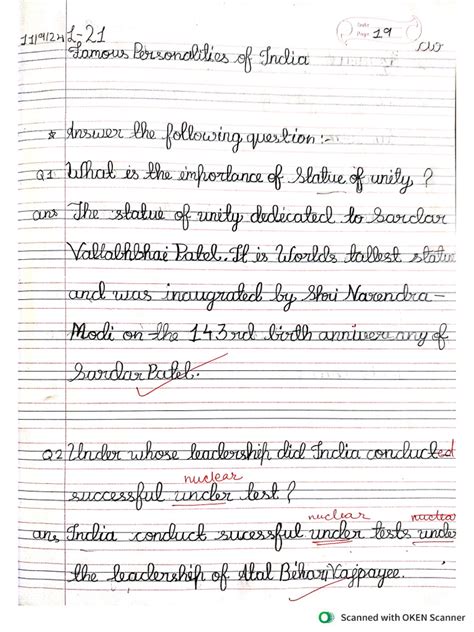 Date
11/9/24 L-21 Page 19
Famous Personalities of India cw
* Answer the following question :-
Q1 What is the importance of Statue of unity ?
ans The statue of unity dedicated to Sardar
Vallabhbhai Patel. It is Worlds tallest statue
and was inaugrated by Shri Narendra-
Modi on the 143rd birth anniversary of
Sardar Patel.
Q2 Under whose leadership did India conducted
nuclear
successful under test ?
nuclear nuclear
ans India conduct sucessful under tests under
the leadership of Atal Bihari Vajpayee.
Scanned with OKEN Scanner